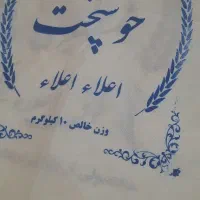 خوشبخت
اعلاء اعلاء
وزن خالص ۱۰ کیلوگرم